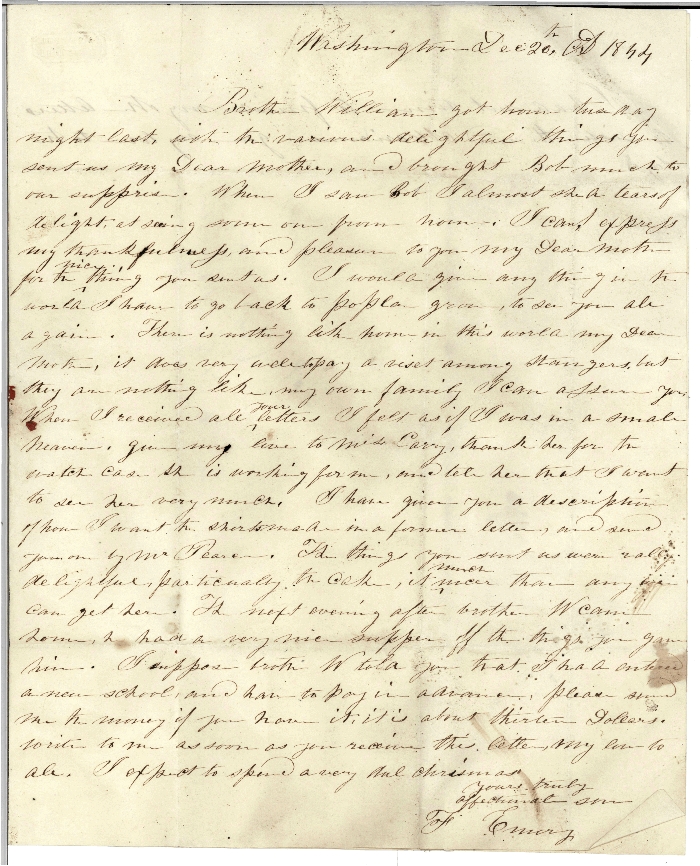 Washington Dec 20th AD 1844
Brother William got home tusday
night last, with the various delightful things you
sent us my Dear Mother, and brought Bob much to
our supprise. When I saw Bob I almost shed tears of
delight, at seing some one from home. I cant express
my thankfulness, and pleasure to you my Dear Mother
for the nice thing you sent us. I would give any thing in the
world I have to go back to poplar grove, to see you all
again. There is nothing like home in this world my Dear
Mother, it does very well to pay a viset among strangers, but
they are nothing like, my own family I can assure you.
When I received all your letters I felt as if I was in a small
heaven. give my love to Miss Carry, thank her for the
watch case she is working for me, and tell her that I want
to see her very much. I have given you a description
of how I want the shirts made in a former letter, and send
you one by Mr Pearce. The things you sent us were really
delightful, particually the cake, it much nicer than any we
can get here. The next evening after brother W came
home, he had a very nice supper off the things you gave
him. I suppose brother W told you that I had entered
a new school, and have to pay in advance, please send
me the money if you have it, it is about thirteen Dollars.
write to me as soon as you receive this letter, My love to
all. I expect to spend a very dul chrismas
yours truly
affectionate son
F Emory